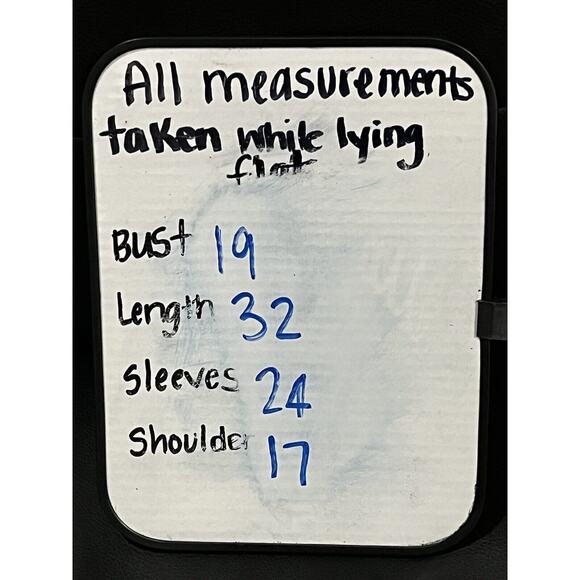 All measurements
taken while lying
flat
Bust 19
Length 32
Sleeves 24
Shoulder 17